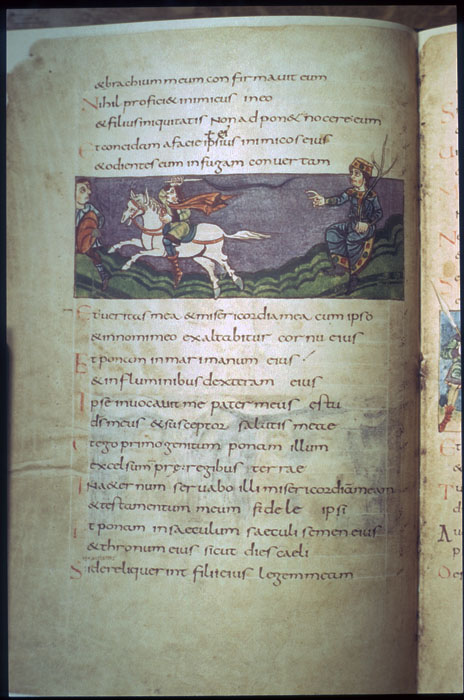 &brachium meum confirmavit eum
Nihil profici& inimicus in eo
&filius iniquitatis Non adpon& nocere eum
Et concidam a facie ipsius inimicos eius
&odientes eum in fugam convertam
Et veritas mea &misericordia mea cum ipso
&in nomine meo exaltabitur cornu eius
Et ponam in mari manum eius
&in fluminibus dexteram eius
Ipse invocavit me pater meus es tu
ds meus &susceptor salutis meae
Et ego primogenitum ponam illum
excelsum prae regibus terrae
In a&ernum servabo illi misericordiā meam
&testamentum meum fidele ipsi
Et ponam in saeculum saeculi semen eius
&thronum eius sicut dies caeli
Si dereliquerint filii eius legem meam